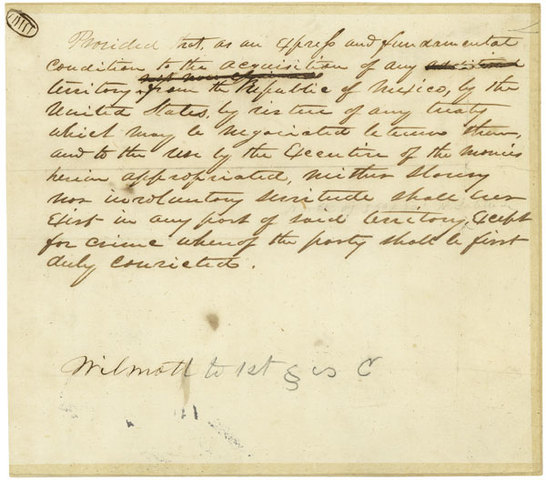 Provided that, as an express and fundamental
condition to the acquisition of any
territory from the Republic of Mexico, by the
United States, by virtue of any treaty
which may be negociated between them,
and to the use by the Executive of the monies
herein appropriated, neither slavery
nor involuntary servitude shall ever
exist in any part of said territory, except
for crime whereof the party shall be first
duly convicted.
Wilmott to 1st § C